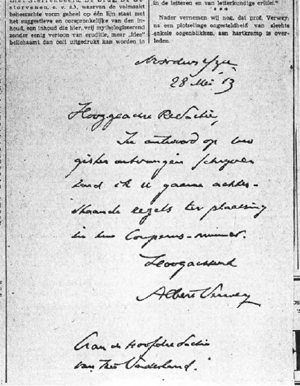 beheerschte vorm geheel op één lijn staat met
het suggestieve en oorspronkelijke van den in-
houd, een inhoud die hier, vrij
zonder eenig vertoon van eruditie, meer
dan ooit gelijk kan worden in
in de letteren en van letterkundige critiek".
Nader vernemen wij nog, dat prof. Verwey,
na een plotselinge ongesteldheid van slechts
enkele oogenblikken, aan hartkramp is over-
leden.
Noordwijk/Zee
28 Mei
Hooggeachte Redactie,
In antwoord op uw
gister ontvangen schrijven
zend ik u gaarne achter-
staande regels ter plaatsing
in uw Couperus-nummer.
Hoogachtend
Albert Verwey
Aan de Hoofdredactie
van Het Vaderland.